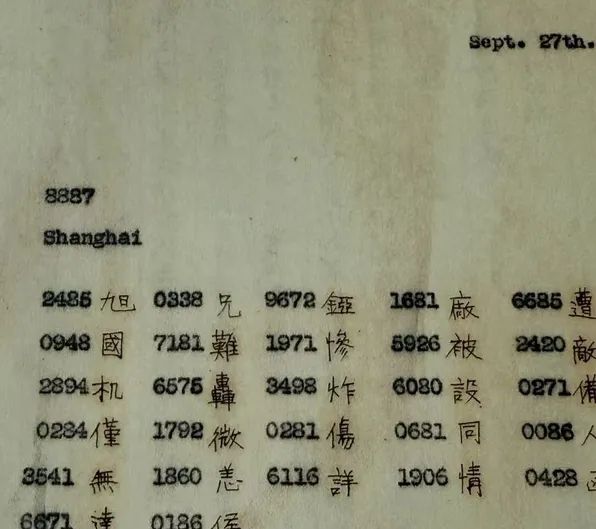 Sept. 27th.
8887
Shanghai
2485 旭 0338 兄 9672 鋞 1681 廠 6685 遭
0948 國 7181 難 1971 慘 5926 被 2420 敵
2894 机 6575 轟 3498 炸 6080 設 0271 備
0284 僅 1792 微 0281 傷 0681 同 0086 人
3541 無 1860 恙 6116 詳 1906 情 0428
6671 達 0186